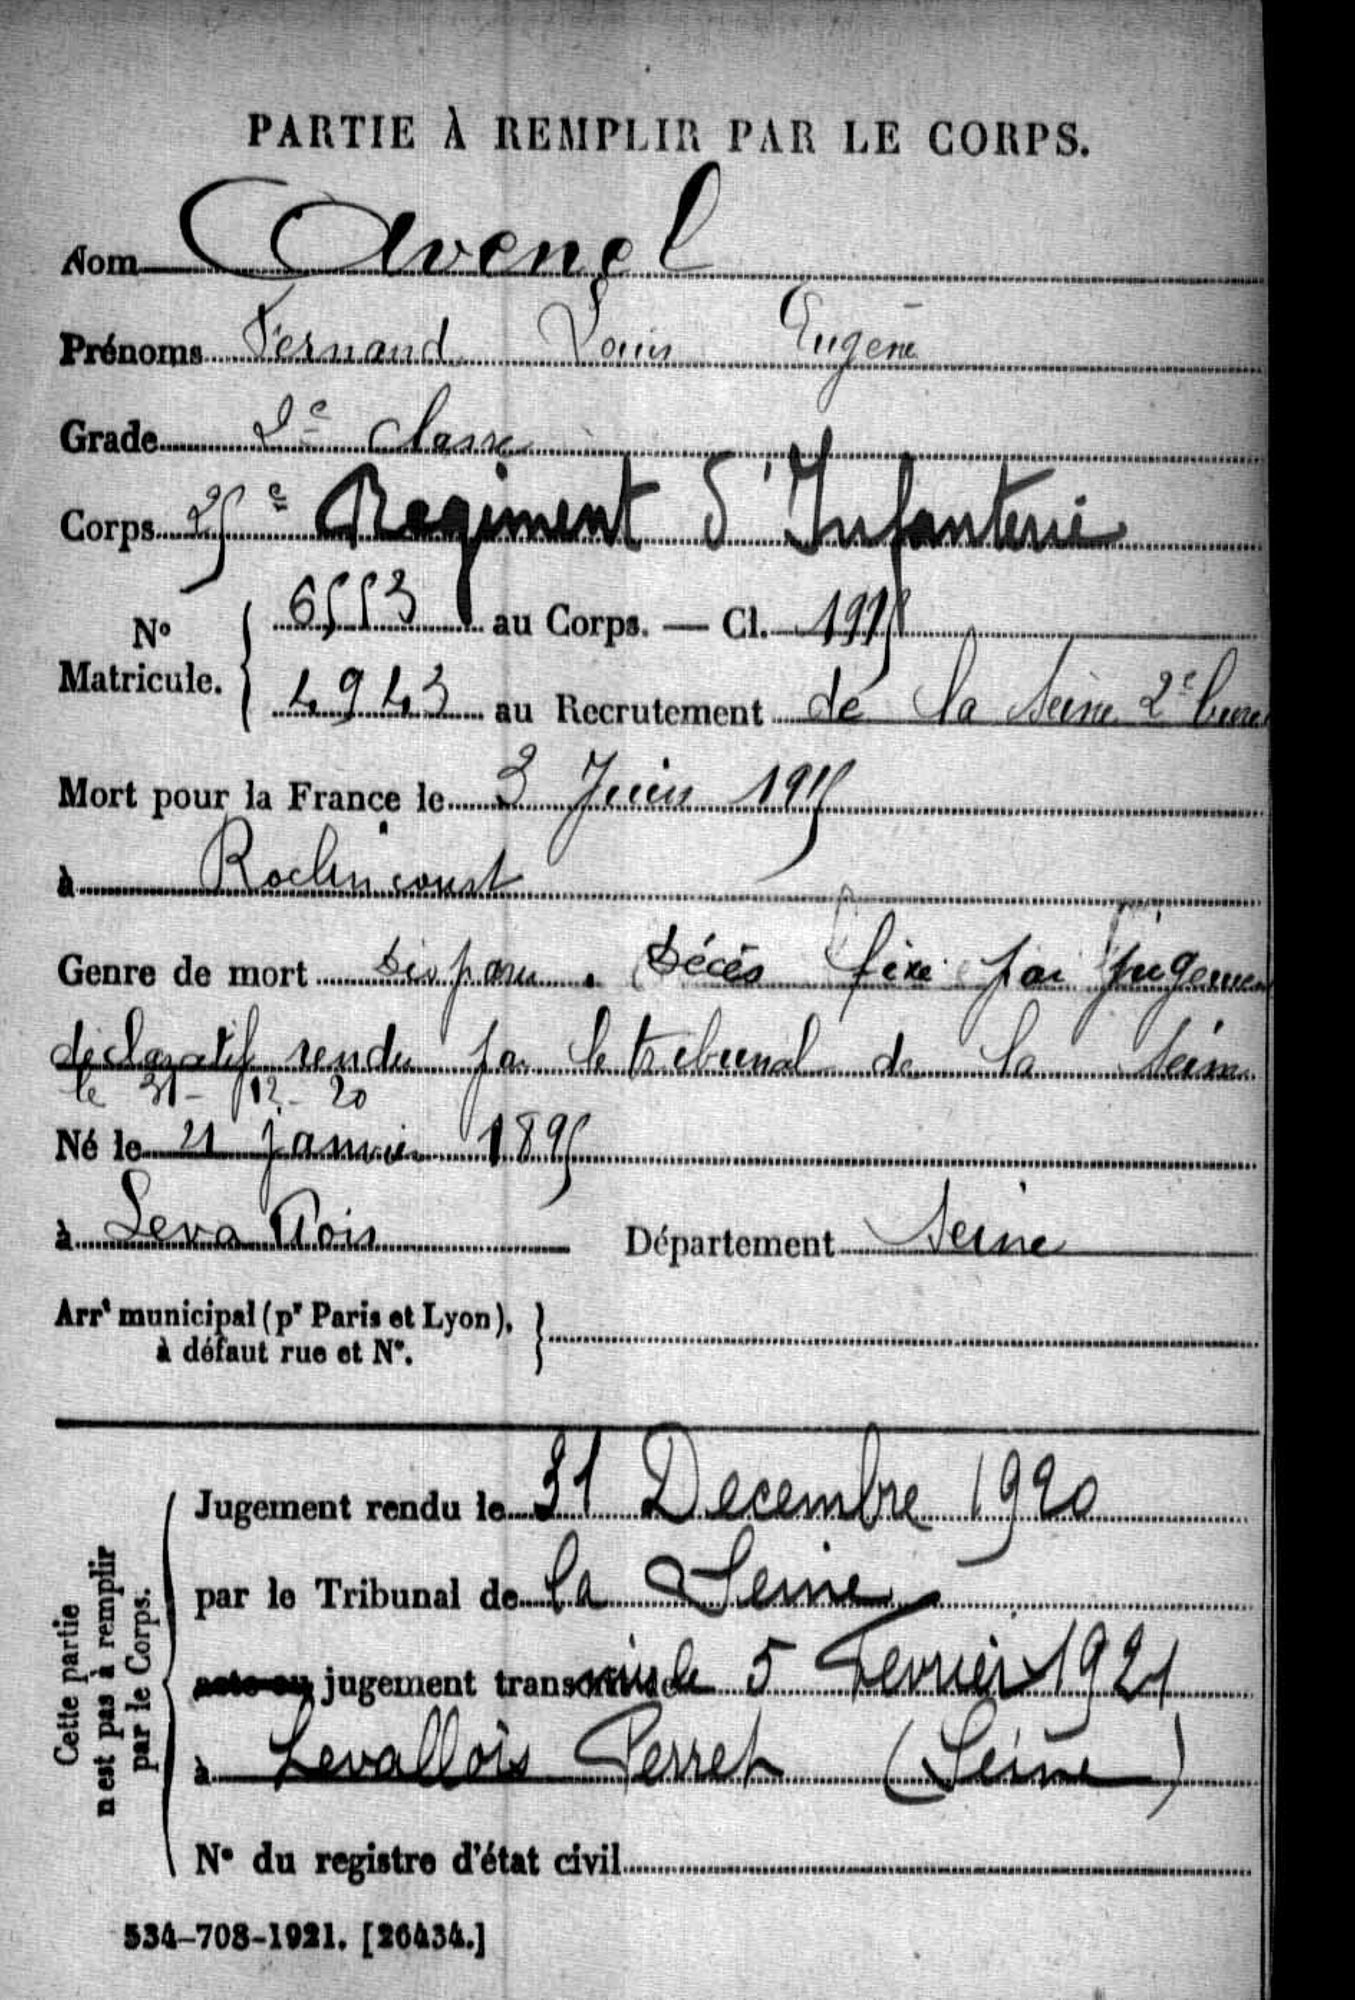 PARTIE À REMPLIR PAR LE CORPS.
Nom Avenel
Prénoms Fernand Louis Eugène
Grade 2e classe
Corps 25e Régiment d'Infanterie
No Matricule. 6553 au Corps. — Cl. 1915
4943 au Recrutement de la Seine 2e bure
Mort pour la France le 3 Juin 1915
à Roclincourt
Genre de mort Disparu. Décès fixé par jugemen
déclaratif rendu par le tribunal de la Seine
le 31-12-20
Né le 21 janvier 1895
à Levallois Département Seine
Arrt municipal (pr Paris et Lyon),
à défaut rue et No.
Cette partie
n'est pas à remplir
par le Corps.
Jugement rendu le 31 Decembre 1920
par le Tribunal de la Seine
acte ou jugement transcrit le 5 Fevrier 1921
à Levallois Perret (Seine)
No du registre d'état civil
534-708-1921. [26434.]